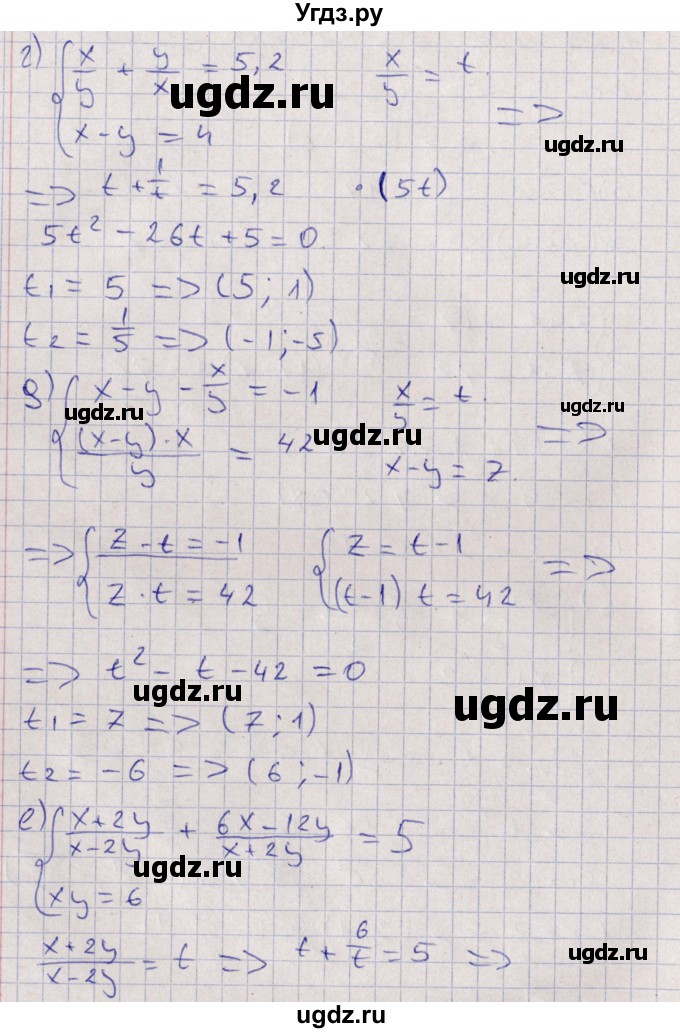 Угдз.ру
г) { x/y + y/x = 5,2    x/y = t.
x - y = 4    =>
ugdz.ru
ugdz.ru
=> t + 1/t = 5,2    · (5t)
5t² - 26t + 5 = 0.
ugdz.ru
t1 = 5 => (5; 1)
t2 = 1/5 => (-1; -5)
д) { x - y - x/y = -1    x/y = t.
ugdz.ru
ugdz.ru
ugdz.ru
(x-y)·x/y = 42    x - y = z.    =>
=> { z - t = -1    { z = t - 1
z · t = 42    (t-1) t = 42    =>
ugdz.ru
=> t² - t - 42 = 0
ugdz.ru
ugdz.ru
t1 = 7 => (7; 1)
t2 = -6 => (6; -1)
е) { x+2y/x-2y + 6x-12y/x+2y = 5
ugdz.ru
xy = 6
x+2y/x-2y = t => t + 6/t = 5 =>
ugdz.ru
ugdz.ru